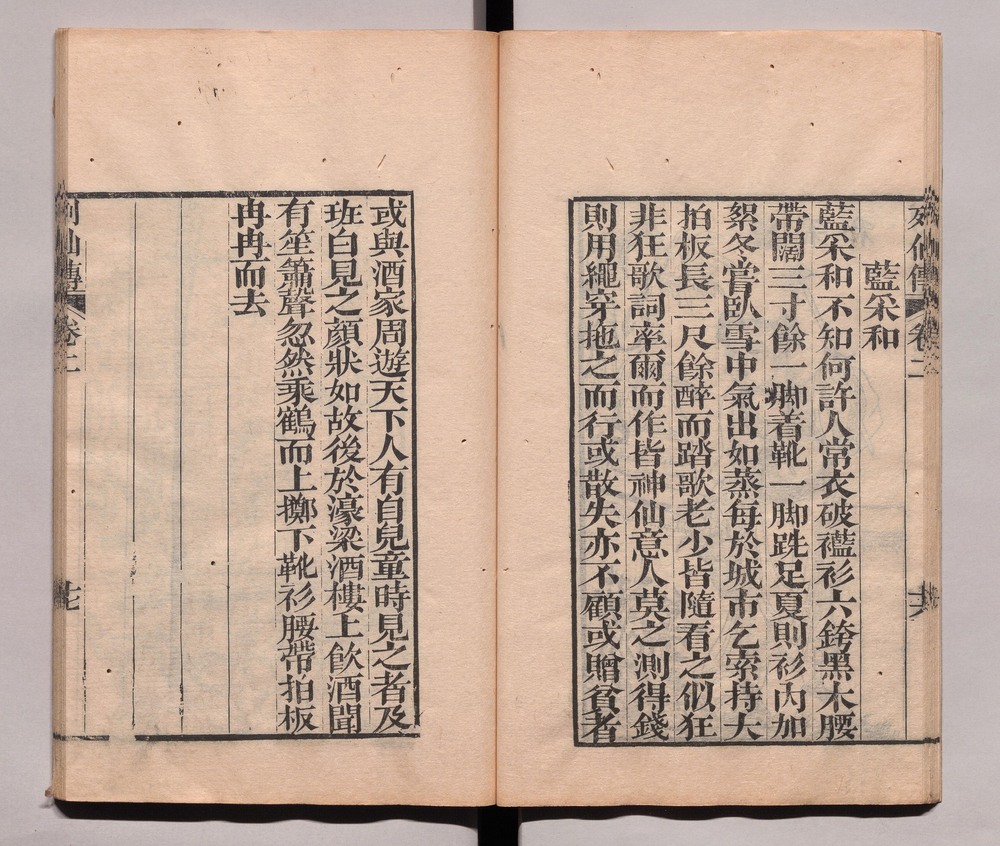 列仙傳 卷二 十六
藍采和
藍采和不知何許人常衣破襤衫六銙黑木腰
帶闊三寸餘一脚着靴一脚跣足夏則衫內加
絮冬嘗臥雪中氣出如蒸每於城市乞索持大
拍板長三尺餘醉而踏歌老少皆隨看之似狂
非狂歌詞率爾而作皆神仙意人莫之測得錢
則用繩穿拖之而行或散失亦不顧或贈貧者
或與酒家周遊天下人有自兒童時見之者及
班白見之顏狀如故後於濠梁酒樓上飲酒聞
有笙簫聲忽然乘鶴而上擲下靴衫腰帶拍板
冉冉而去
列仙傳 卷二 十七